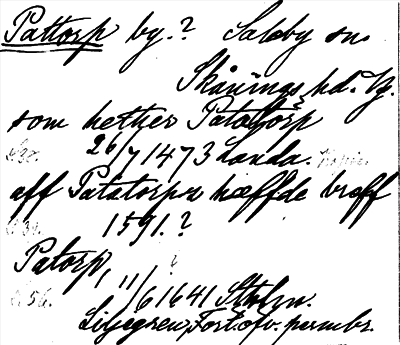 Pattorp by.? Saleby sn.
Skånings hd. Vg.
som hether Patatorp
26/7 1473 Landa. Kopia.
A 20.
aff Patatorpa hæffde breff
1591.?
A 34.
Patorp, 11/6 1641 Sthlm.
A 56.
Liljegren, Fört. öfv. permbr.